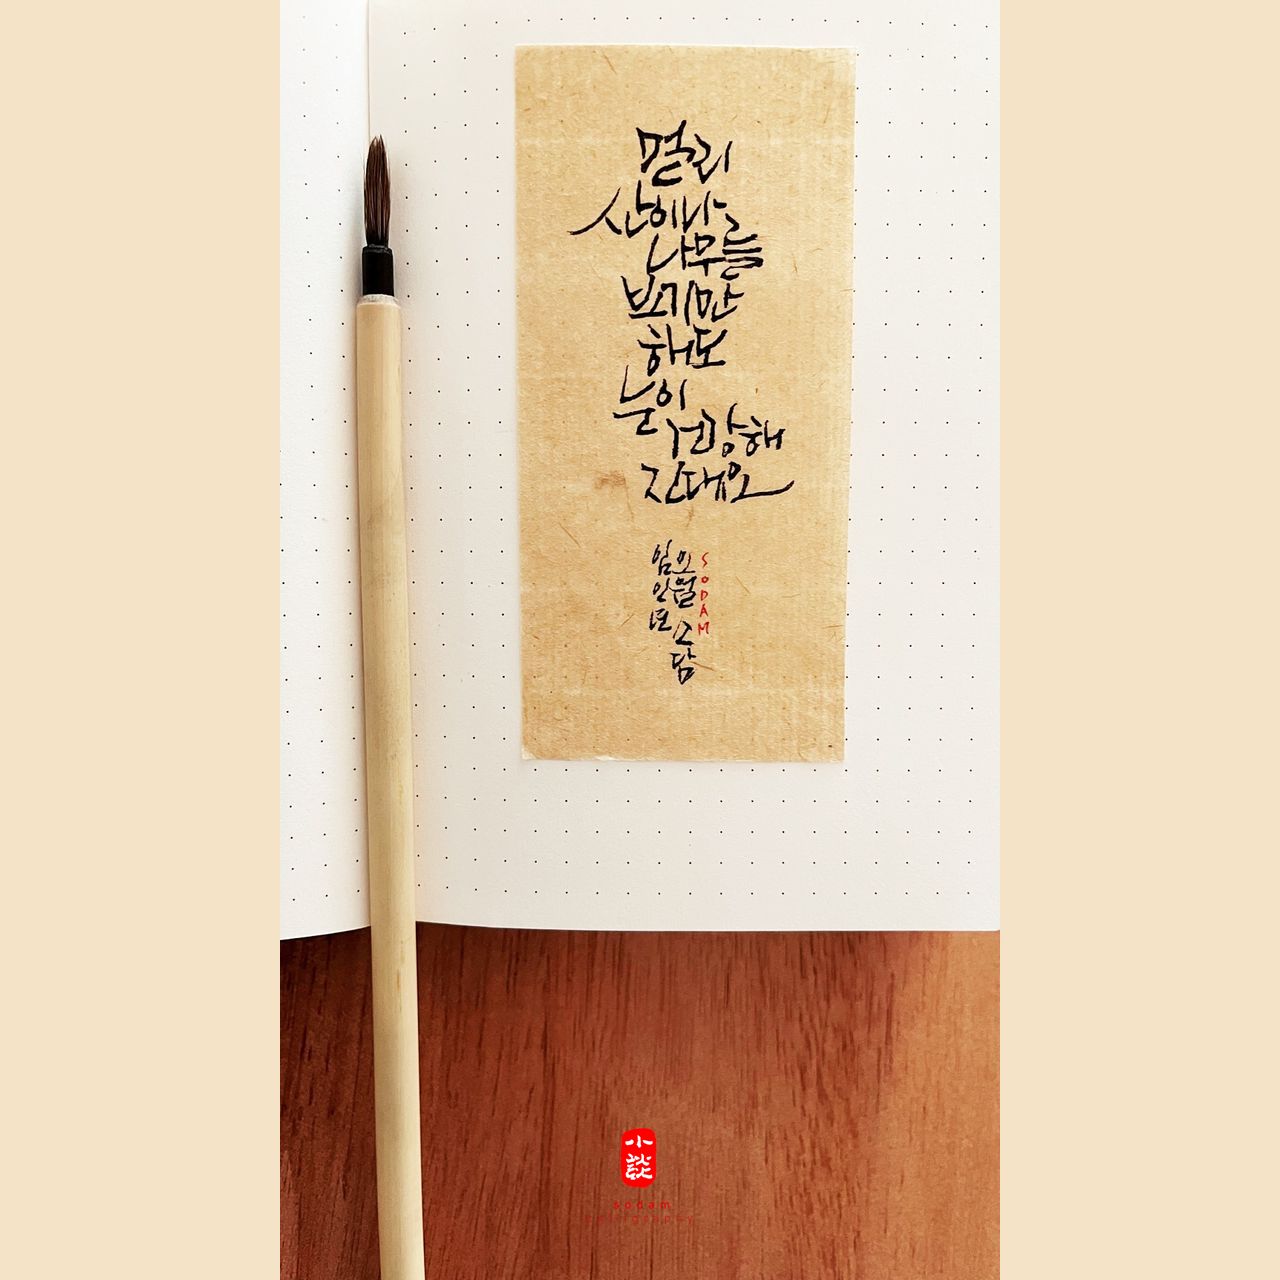 멀리
산이나
나무를
보기만
해도
눈이
건강해
진대요
임인년
오월 소담
SODAM
小談
sodam
calligraphy